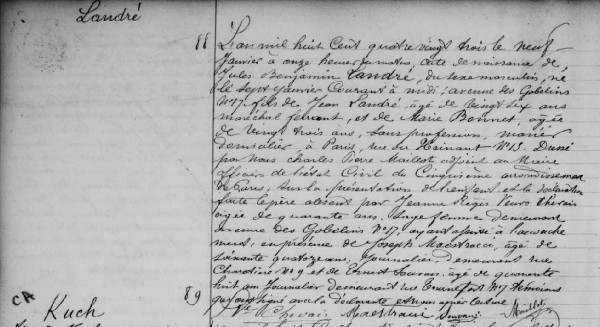 Landré
88
L'an mil huit cent quatre vingt trois le neuf
Janvier à onze heures du matin, acte de naissance de
Jules Benjamin Landré, du sexe masculin, né
le sept Janvier courant à midi, avenue des Gobelins
N° 7, fils de Jean Landré, âgé de vingt six ans
maréchal ferrant, et de Marie Bonnet, agée
de vingt trois ans, sans profession, mariés
domiciliés à Paris, rue du N° 13. Dressé
par nous Charles Pierre Maillot adjoint au Maire
officier de l'état Civil du Cinquième arrondissement
de Paris, sur la présentation de l'enfant et la déclaration
faite le père absent par Jeanne Régis Veuve
agée de quarante ans, sage femme demeurant
avenue des Gobelins N° 7, ayant assisté à l'accouche
ment, en présence de Joseph Maestracci, âgé de
soixante quatorze ans, Journalier, demeurant rue
N° 9 et de Ernest âgé de quarante
huit ans Journalier demeurant rue Tournefort N° 7 témoins
qui ont signé avec la déclarante et nous après lecture
Maestracci Maillot
CA
89
Kuch